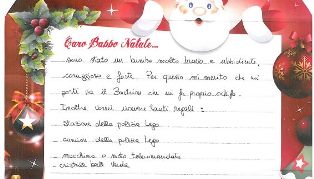 Caro Babbo Natale...
sono stato un bambino molto bravo e ubbidiente,
coraggioso e forte. Per questo mi merito che mi
porti va il
Inoltre vorrei avere tanti regali:
- stazione della polizia Lego
- camion della polizia Lego
- macchina o moto telecomandata